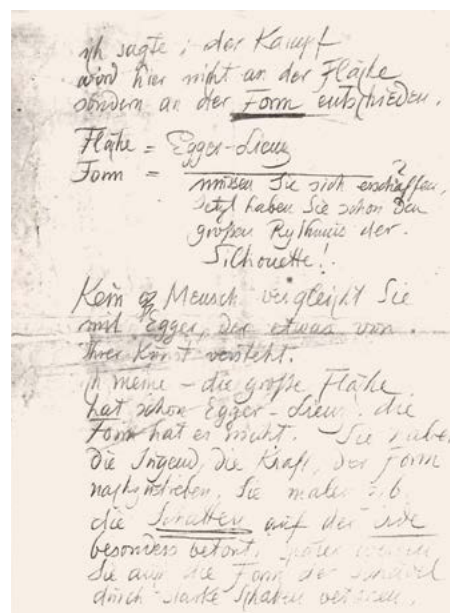 ich sagte: der Kampf
wird hier nicht an der Fläche
sondern an der Form entschieden.
Fläche = Egger-Lienz
Form = ?
müssen Sie sich erschaffen,
jetzt haben Sie schon den
großen Rythmus der
Silhouette!
Kein Mensch vergleicht Sie
mit Egger, der etwas von
Ihrer Kunst versteht.
ich meine – die große Fläche
hat schon Egger-Lienz, die
Form hat er nicht. Sie haben
die Jugend, die Kraft, der Form
nachzustreben. Sie malen z.b.
die Schatten auf der Erde
besonders betont. Später werden
Sie auch die Form der Schädel
durch starke Schatten